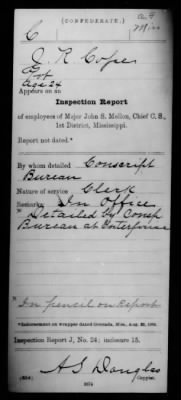 (CONFEDERATE.)
C
J. R. Cofer
Age 24
Appears on an
Inspection Report
of employees of Major John S. Mellon, Chief C. S.,
1st District, Mississippi.
Report not dated.*
By whom detailed Conscript
Bureau
Nature of service Clerk
Remarks: In Office
Detailed by Consp
Bureau at Enterprise
In pencil on Report
*Endorsement on wrapper dated Grenada, Miss., Aug.
Inspection Report J, No. 24; inclosure 15.
A S Douglas
Copyist.